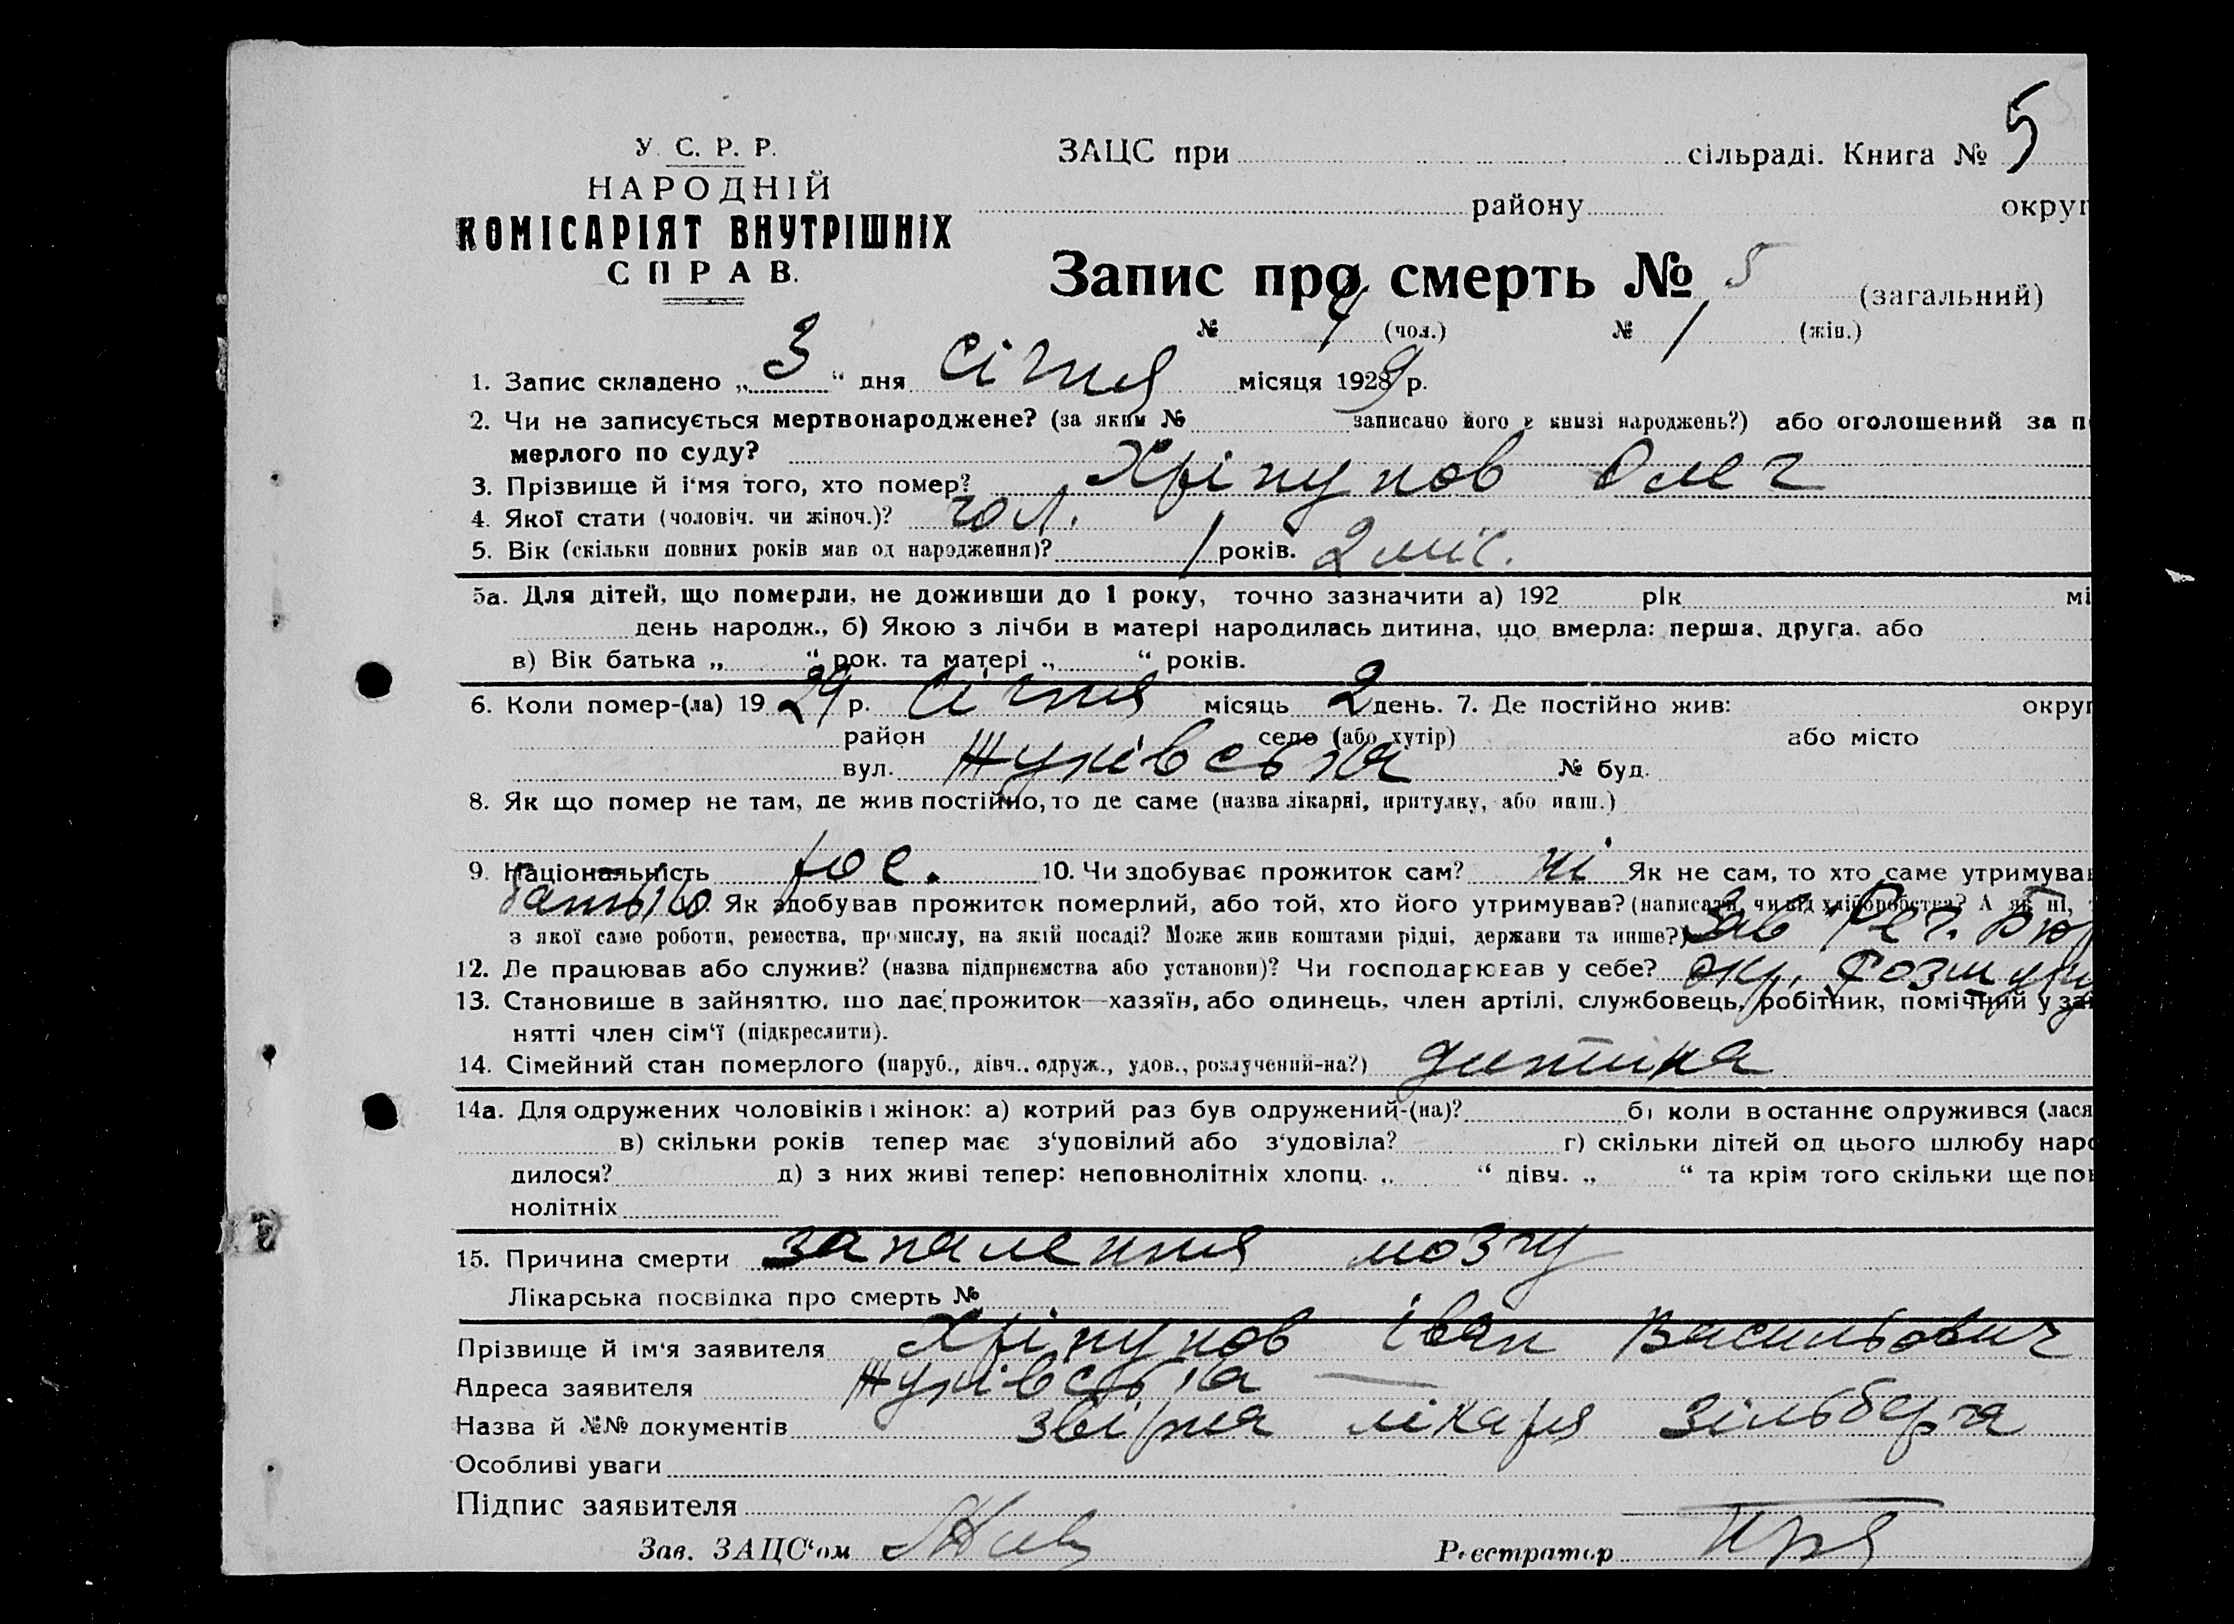 У. С. Р. Р.
НАРОДНІЙ
КОМІСАРІЯТ ВНУТРІШНІХ
СПРАВ.
ЗАЦС при сільраді. Книга № 5
району округ
Запис про смерть № 5 (загальний)
№ 4 (чол.) № 1 (жін.)
1. Запис складено „ 3 “ дня січня місяця 1929 р.
2. Чи не записується мертвонароджене? (за яким № записано його в книзі народжень?) або оголошений за п
мерлого по суду?
3. Прізвище й і‘мя того, хто помер? Хріпунов Олег
4. Якої стати (чоловіч. чи жіноч.)? чол.
5. Вік (скільки повних років мав од народження)? 1 років. 2 міс.
5а. Для дітей, що померли, не доживши до 1 року, точно зазначити а) 192 рік мі
день народж., б) Якою з лічби в матері народилась дитина, що вмерла: перша, друга, або
в) Вік батька „ “ рок. та матері „ “ років.
6. Коли помер-(ла) 19 29 р. січня місяць 2 день. 7. Де постійно жив: округ
район село (або хутір) або місто
вул. Жуківська № буд.
8. Як що помер не там, де жив постійно, то де саме (назва лікарні, притулку, або инш.)
9. Національність рос. 10. Чи здобуває прожиток сам? ні Як не сам, то хто саме утримува
батько Як здобував прожиток померлий, або той, хто його утримував? (написати, чи від хліборобства? А як ні,
з якої саме роботи, ремества, промислу, на якій посаді? Може жив коштами рідні, держави та инше?) Зав Рег. Бюр
12. Де працював або служив? (назва підприємства або установи)? Чи господарював у себе? окр. Розшуку
13. Становише в зайняттю, що дає прожиток—хазяїн, або одинець, член артілі, службовець, робітник, помічний у за
нятті член сім‘ї (підкреслити).
14. Сімейний стан померлого (паруб., дівч., одруж., удов., розлучений-на?) дитина
14а. Для одружених чоловіків і жінок: а) котрий раз був одружений-(на)? б) коли в останнє одружився (лася
в) скільки років тепер має з‘удовілий або з‘удовіла? г) скільки дітей од цього шлюбу наро
дилося? д) з них живі тепер: неповнолітніх хлопц. „ “ дівч. „ “ та крім того скільки ще пов
нолітніх
15. Причина смерти запалення мозгу
Лікарська посвідка про смерть №
Прізвище й ім‘я заявителя Хріпунов Іван Васильович
Адреса заявителя Жуківська
Назва й №№ документів лікаря Зільберга
Особливі уваги
Підпис заявителя
Зав. ЗАЦС‘ом
Реєстратор